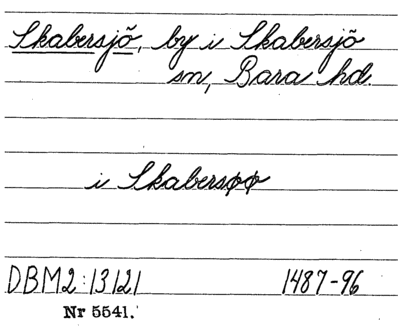 Skabersjö, by i Skabersjö
sn, Bara hd.
i Skabersøø
DBM2:13121 1487-96
Nr 5541.